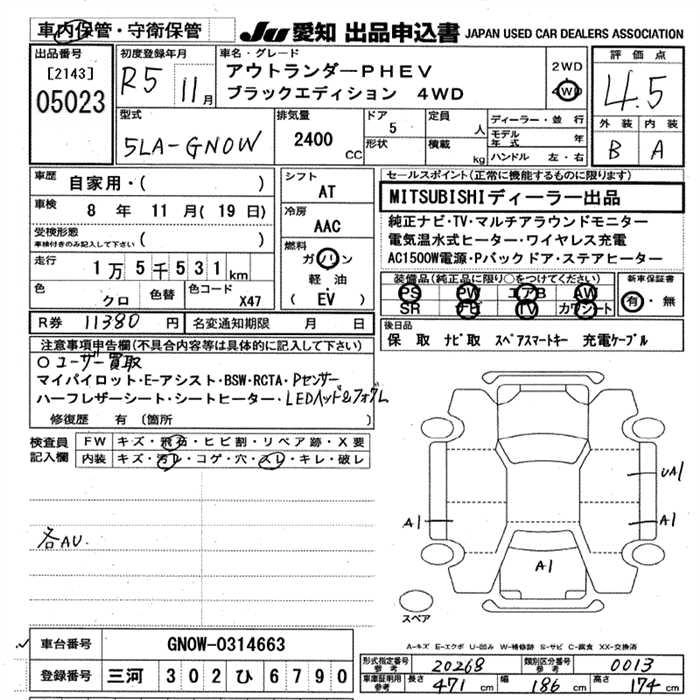 車内保管・守衛保管
JU 愛知 出品申込書 JAPAN USED CAR DEALERS ASSOCIATION
出品番号 [2143] 05023
初度登録年月 R5 11月
車名・グレード
アウトランダーPHEV
ブラックエディション 4WD
2WD
4WD
評価点
4.5
外装 内装
B A
型式 5LA-GN0W
排気量 2400 CC
ドア 5
形状
定員 人
積載 kg
ディーラー・並行
モデル年式 年
ハンドル 左・右
車歴 自家用・( )
車検 8年 11月( 19日)
受検形態
車検付きのみ記入して下さい ( )
走行 1万5千531km
色 クロ 色替 色コード X47
シフト AT
冷房 AAC
燃料 ガソリン
軽油
(EV)
R券 11380円 名変通知期限 月 日
セールスポイント(正常に機能するものに限ります)
MITSUBISHIディーラー出品
純正ナビ・TV・マルチアラウンドモニター
電気温水式ヒーター・ワイヤレス充電
AC1500W電源・Pバックドア・ステアヒーター
装備品(純正品に限り○をつけてください) 新車保証書
PS PW エアB AW 有・無
SR ナビ TV カワシート
後日品
保 取 ナビ取 スペアスマートキー 充電ケーブル
注意事項申告欄(不具合内容等は具体的に記入して下さい)
○ユーザー買取
マイパイロット・E-アシスト・BSW・RCTA・Pセンサー
ハーフレザーシート・シートヒーター・LEDヘッド&フォグL
修復歴 有 (箇所 )
検査員記入欄
FW キズ・飛石・ヒビ割・リペア跡・X要
内装 キズ・汚レ・コゲ・穴・スレ・キレ・破レ
各AU.
UA1
A1
A1
A1
スペア
A-キズ E-エクボ U-凹み W-補修跡 S-サビ C-腐食 XX-交換済
車台番号 GN0W-0314663
登録番号 三河 302 ひ 6790
形式指定番号 参考 20268 類別区分番号 参考 0013
車庫証明用 参考 長さ 471 cm 幅 186 cm 高さ 174 cm